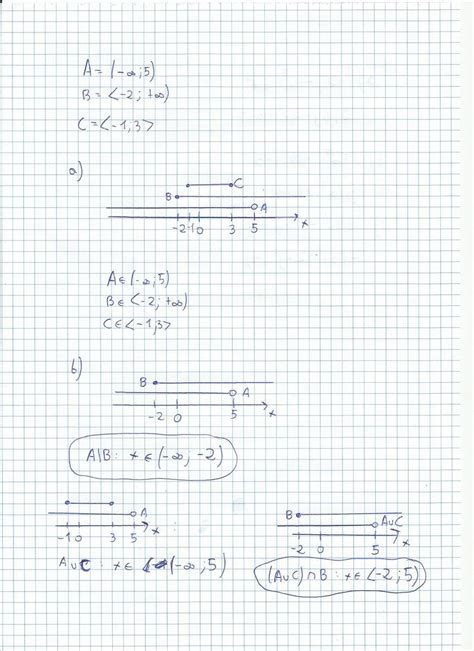 A = (-∞; 5)
B = <-2; +∞)
C = <-1, 3>
a)
C
B
A
-2 -1 0 3 5 x
A ∈ (-∞; 5)
B ∈ <-2; +∞)
C ∈ <-1, 3>
b)
B
A
-2 0 5 x
A|B: x ∈ (-∞, -2)
A
-1 0 3 5 x
A∪C: x ∈ (-∞; 5)
B
A∪C
-2 0 5 x
(A∪C)∩B: x ∈ <-2; 5)